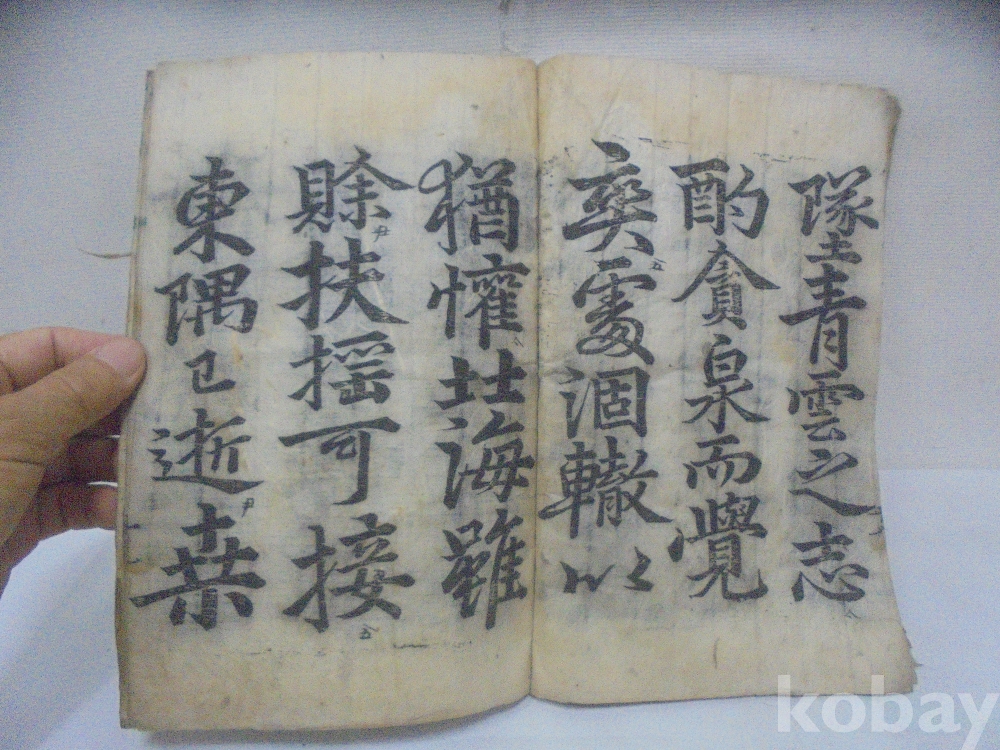 墜青雲之志
酌貪泉而覺
爽處涸轍以
猶懽北海雖
賒扶搖可接
東隅已逝桒
kobay